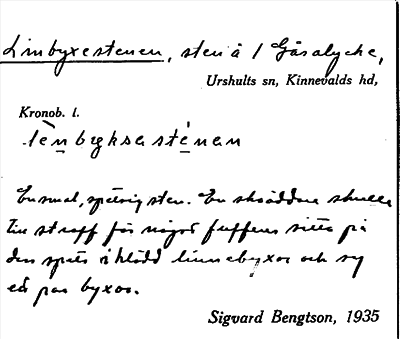 Linbyxestenen, sten å 1 Gåsalycke,
Urshults sn, Kinnevalds hd,
Kronob. l.
lènbyksasténan
En smal, spetsig sten. En skräddare skulle
till straff för något fuffens sitta på
den spets iklädd linnebyxor och sy
ett par byxor.
Sigvard Bengtson, 1935